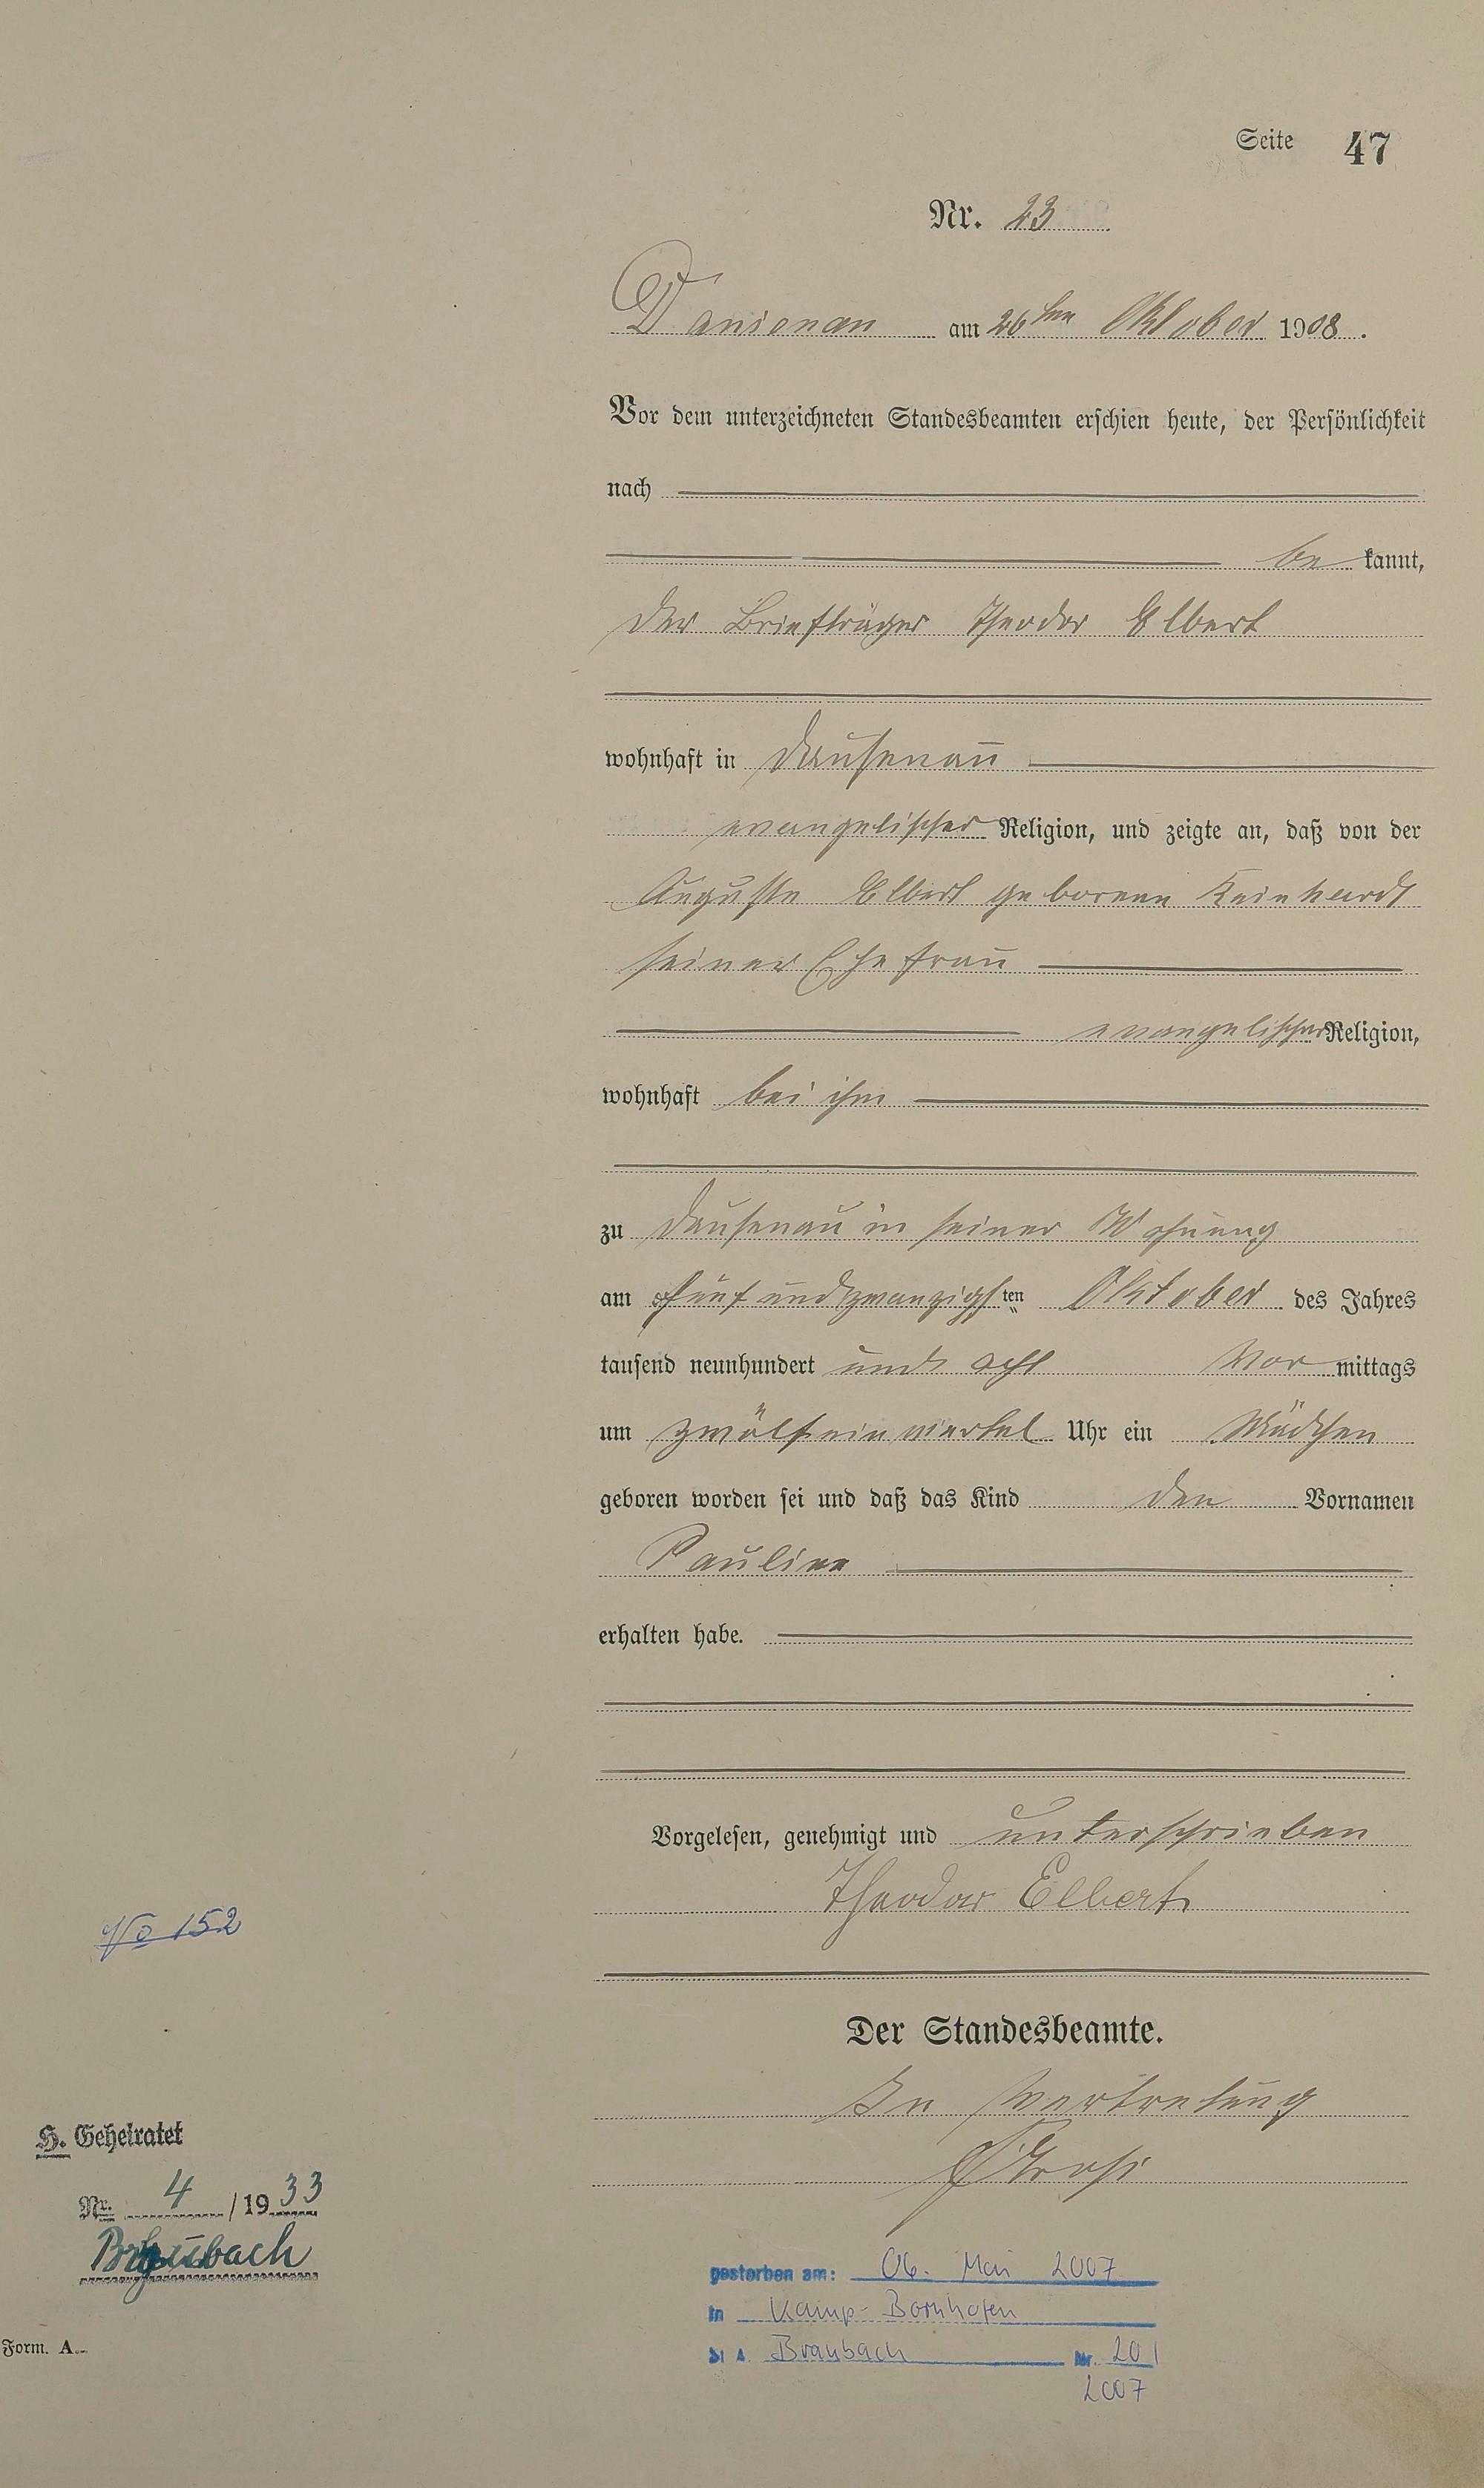 Seite 47
Nr. 23
Dausenau am 26ten Oktober 1908.
Vor dem unterzeichneten Standesbeamten erschien heute, der Persönlichkeit
nach
be kannt,
der Briefträger Theodor Elbert
wohnhaft in Dausenau
evangelischer Religion, und zeigte an, daß von der
Auguste Elbert geborene Reinhardt
seiner Ehefrau
evangelischer Religion,
wohnhaft bei ihm
zu Dausenau in seiner Wohnung
am fünfundzwanzigsten Oktober des Jahres
tausend neunhundert und acht Vor mittags
um zwölfeinviertel Uhr ein Mädchen
geboren worden sei und daß das Kind den Vornamen
Pauline
erhalten habe.
Vorgelesen, genehmigt und unterschrieben
Theodor Elbert
Der Standesbeamte.
In Vertretung
No 152
H. Geheiratet
Nr. 4 / 1933
Braubach
Form. A.
gestorben am: 06. Mai 2007
in Kamp-Bornhofen
St A. Braubach Nr. 20 /
2007